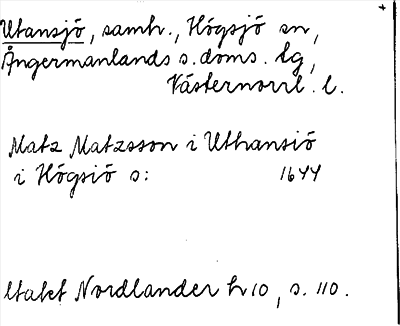 Utansjö, samh., Högsjö sn,
Ångermanlands s. doms. tg,
Västernorrl. l.
Matz Matzsson i Uthansiö
i Högsiö s: 1644
Nordlander h 10, s. 110.